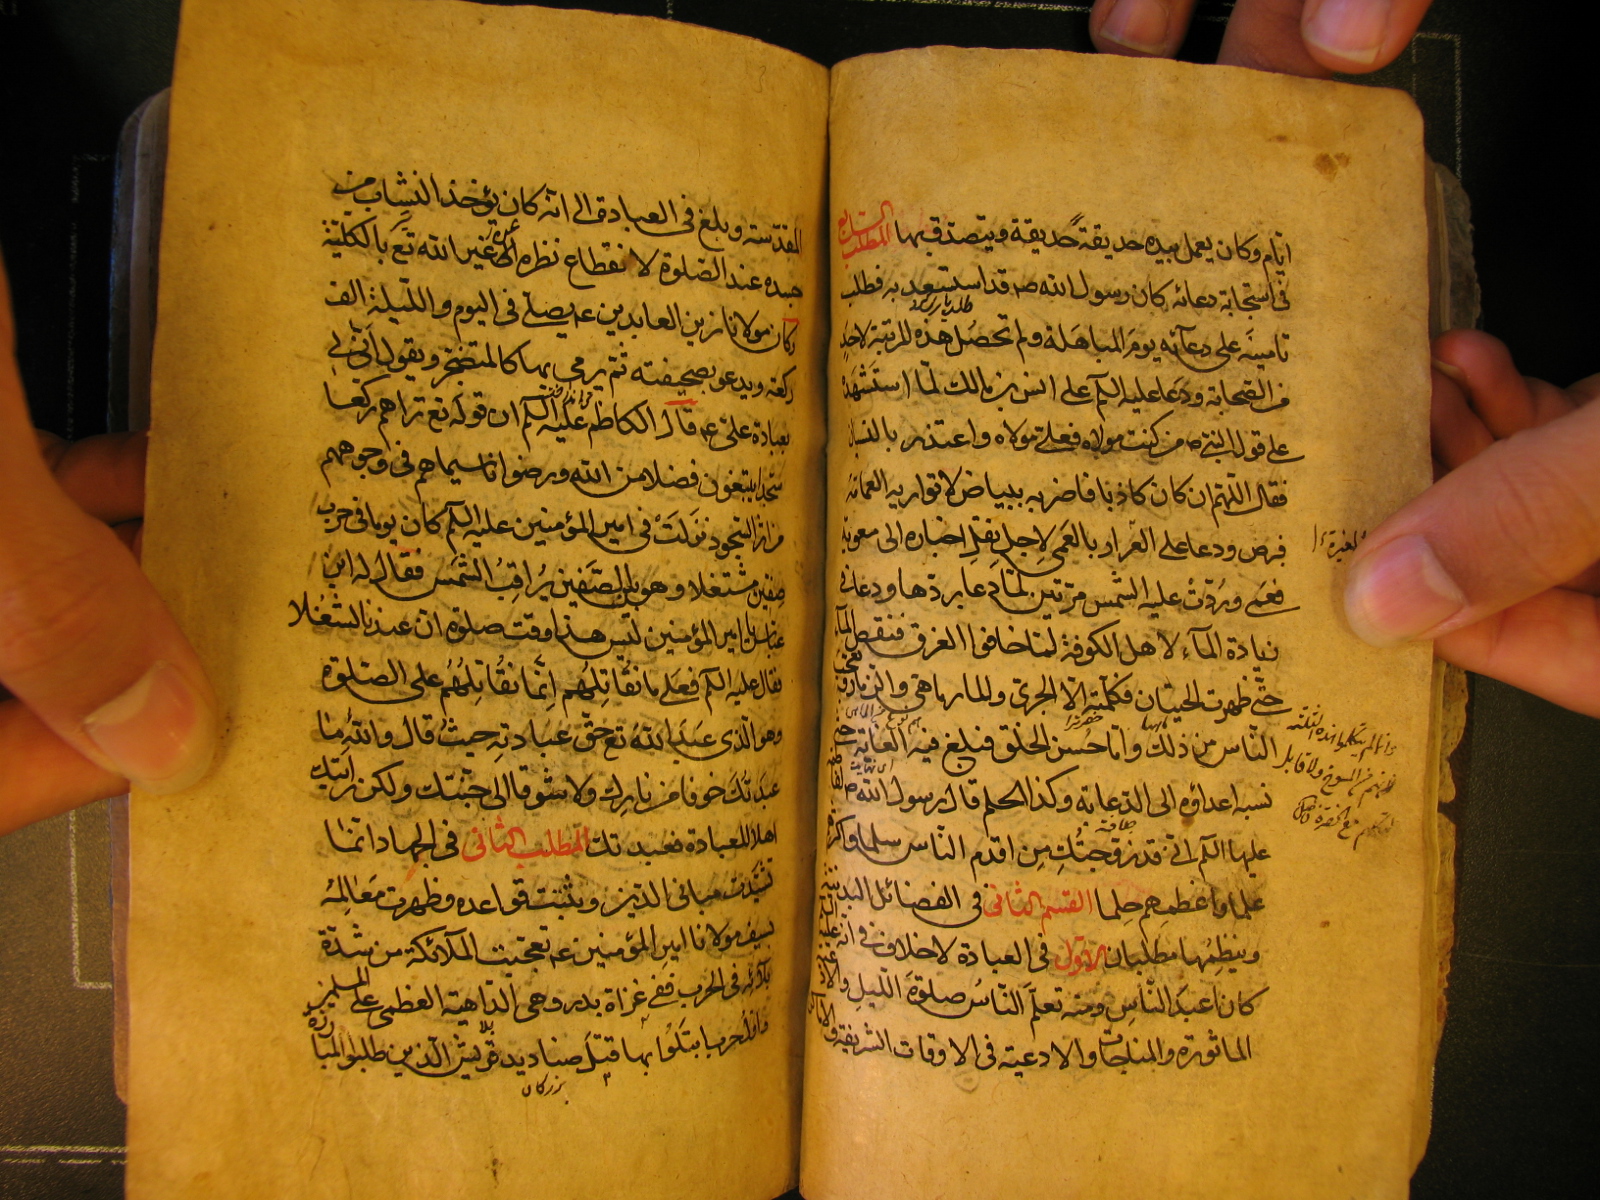 ايام وكان يعمل بيده حديقة حديقة ويتصدق بها المطلب السابع
في استجابة دعائه كان رسول الله ص قد استسعد به فطلب
تامينه على دعائه يوم المباهلة ولم تحصل هذه المرتبة لاحد
من الصحابة ودعا عليه السلم على انس بن مالك لما استشهد
على قول النبي ص من كنت مولاه فعلي مولاه واعتذر بالنسيان
فقال اللهم ان كان كاذبا فاضربه ببياض لا تواريه العمامة
فبرص ودعا على العيزار بالعمى لاجل نقل اخباره الى معوية
فعمى وردت عليه الشمس مرتين لما دعا بردها ودعا في
زيادة الماء لاهل الكوفة لما خافوا الغرق فنقص الماء
حتى ظهرت الحيتان فكلمته الا الجرى والمارماهى والزمار فتعجب
الناس من ذلك واما حسن الخلق فبلغ فيه الغاية حتى
نسبه اعداؤه الى الدعابة وكذا الحلم قال رسول الله ص لفاطمة
عليها السلم انى قد زوجتك من اقدم الناس سلما واكثرهم
علما واعظمهم حلما القسم الثانى في الفضائل البدنية
وينظمها مطلبان الاول في العبادة لا خلاف في انه
كان اعبد الناس ومنه تعلم الناس صلوة الليل والادعية
الماثورة والمناجات والادعية في الاوقات الشريفة والاماكن
المغيرة
المقدسة وبلغ في العبادة الى انه كان يؤخذ النشاب من
جسده عند الصلوة لانقطاع نظره عن غير الله تع بالكلية
وكان مولانا زين العابدين ع يصلي في اليوم والليلة الف
ركعة ويدعو بصحيفته ثم يرمى بها كالمتضجر ويقول انى لى
بعبادة على ع قال الكاظم عليه السلم ان قوله تع تراهم ركعا
سجدا يبتغون فضلا من الله ورضوانا سيماهم في وجوههم
من اثر السجود نزلت في امير المؤمنين عليه السلم كان يوما في حرب
صفين مشتغلا وهو بين الصفين يراقب الشمس فقال له ابن
عباس يا امير المؤمنين ليس هذا وقت صلوة ان عندنا لشغلا
فقال عليه السلم فعلى ما نقاتلهم انما نقاتلهم على الصلوة
وهو الذى عبد الله تع حق عبادته حيث قال والله ما
عبدتك خوفا من نارك ولا شوقا الى جنتك ولكن رايتك
اهلا للعبادة فعبدتك المطلب الثانى في الجهاد انما
تشيدت مبانى الدين وتثبتت قواعده وظهرت معالمه
بسيف مولانا امير المؤمنين ع تعجبت الملائكة من شدة
بلائه في الحرب ففى غزاة بدر وهى الداهية العظمى على المسلمين
واول حرب ابتلوا بها قتل صناديد قريش الذين طلبوا المبارزة
بزركان